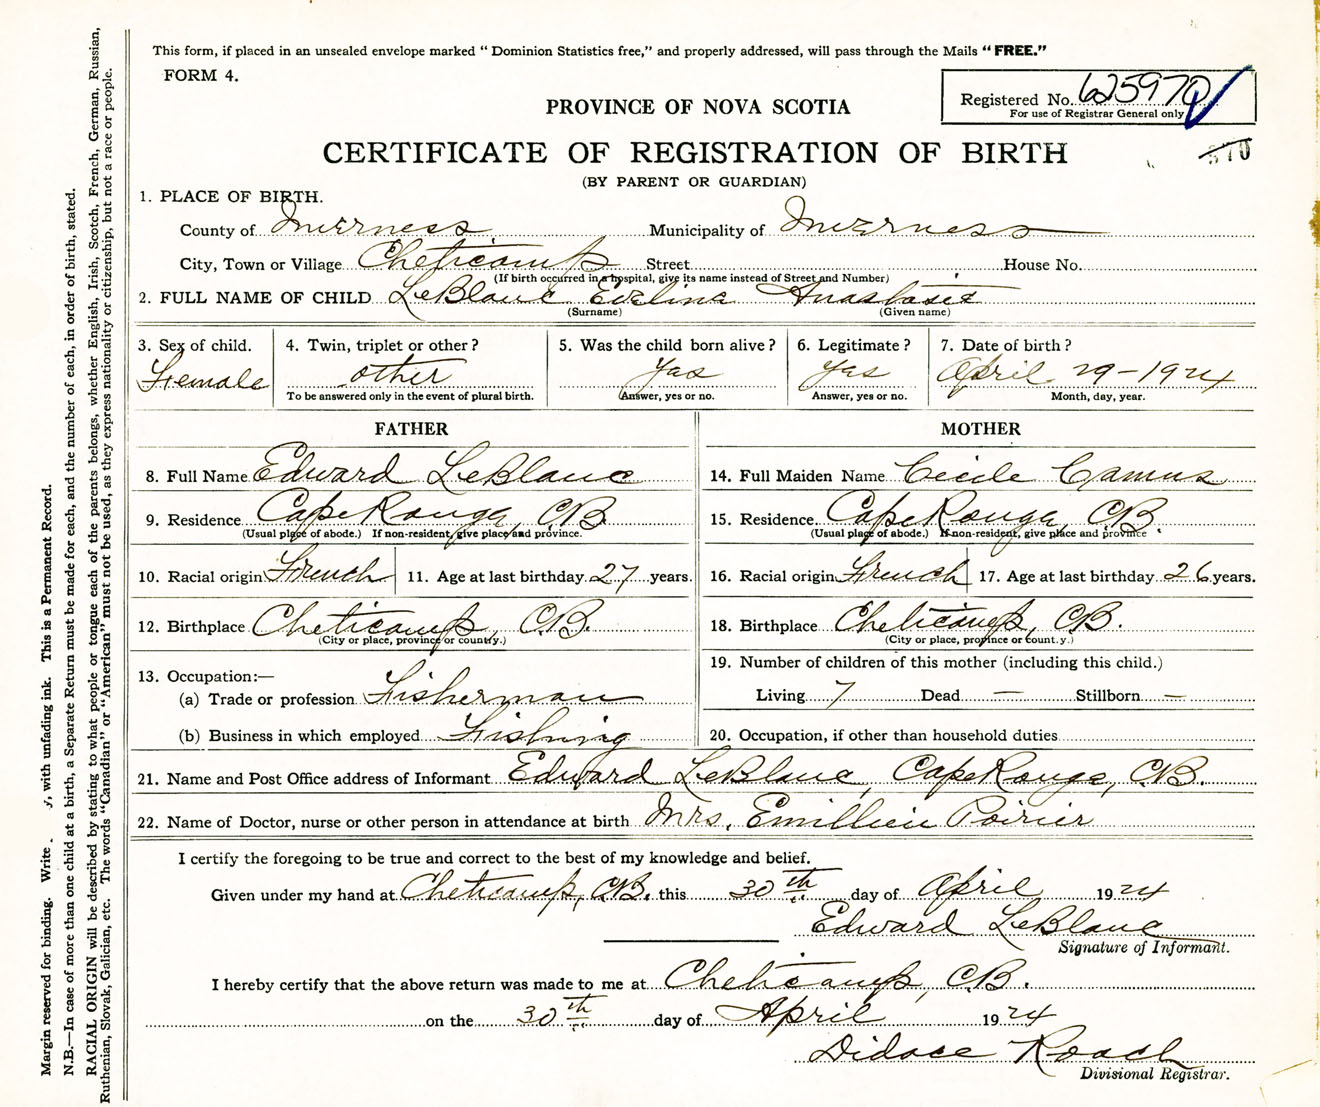 This form, if placed in an unsealed envelope marked "Dominion Statistics free," and properly addressed, will pass through the Mails "FREE."
FORM 4.
Registered No. 625970
For use of Registrar General only
PROVINCE OF NOVA SCOTIA
CERTIFICATE OF REGISTRATION OF BIRTH
570
(BY PARENT OR GUARDIAN)
1. PLACE OF BIRTH.
County of Inverness Municipality of Inverness
City, Town or Village Cheticamp Street House No.
(If birth occurred in a hospital, give its name instead of Street and Number)
2. FULL NAME OF CHILD LeBlanc Evelina Anastasie
(Surname) (Given name)
3. Sex of child. 4. Twin, triplet or other? 5. Was the child born alive? 6. Legitimate? 7. Date of birth?
Female other Yas Yas April 29-1924
To be answered only in the event of plural birth. Answer, yes or no. Answer, yes or no. Month, day, year.
FATHER MOTHER
8. Full Name Edward LeBlanc 14. Full Maiden Name Cécile Camus
9. Residence Cape Rouge, C.B. 15. Residence Cape Rouge, C.B.
(Usual place of abode.) If non-resident, give place and province. (Usual place of abode.) If non-resident, give place and province
10. Racial origin French 11. Age at last birthday 27 years. 16. Racial origin French 17. Age at last birthday 26 years.
12. Birthplace Cheticamp, C.B. 18. Birthplace Cheticamp, C.B.
(City or place, province or country.) (City or place, province or count.y.)
13. Occupation:— 19. Number of children of this mother (including this child.)
(a) Trade or profession Fisherman Living 7 Dead — Stillborn —
(b) Business in which employed Fishing 20. Occupation, if other than household duties
21. Name and Post Office address of Informant Edward LeBlanc, Cape Rouge, C.B.
22. Name of Doctor, nurse or other person in attendance at birth Mrs. Emillien Poirier
I certify the foregoing to be true and correct to the best of my knowledge and belief.
Given under my hand at Cheticamp, C.B. this 30th day of April 1924
Edward LeBlanc
Signature of Informant.
I hereby certify that the above return was made to me at Cheticamp, C.B.
on the 30th day of April 1924
Didace Roach
Divisional Registrar.
Margin reserved for binding. Write y, with unfading ink. This is a Permanent Record.
N.B.—In case of more than one child at a birth, a Separate Return must be made for each, and the number of each, in order of birth, stated.
RACIAL ORIGIN will be described by stating to what people or tongue each of the parents belongs, whether English, Irish, Scotch, French, German, Russian,
Ruthenian, Slovak, Galician, etc. The words "Canadian" or "American" must not be used, as they express nationality or citizenship, but not a race or people.